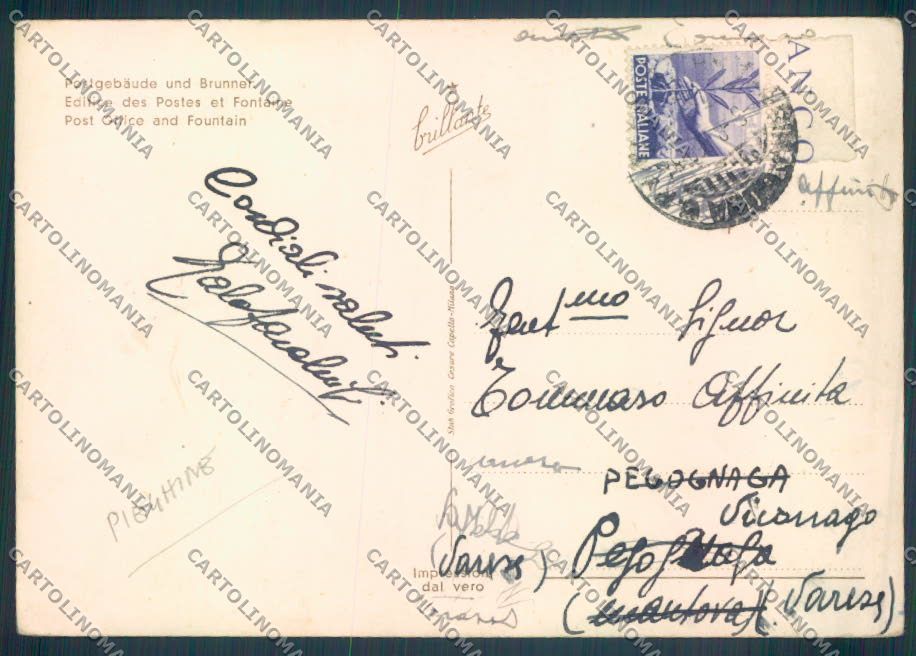 Postgebäude und Brunnen
Edifice des Postes et Fontaine
Post Office and Fountain
brillante
POSTE ITALIANE
ANCO
affinita
Cordiali saluti
Gent.mo Signor
Tommaso Affinita
PEGOGNAGA
Viconago
Pegognaga
(Varese)
(mantova) (Varese)
PIEUHINE
Stab. Grafico Cesare Capello-Milano
Impression
dal vero
CARTOLINOMANIA